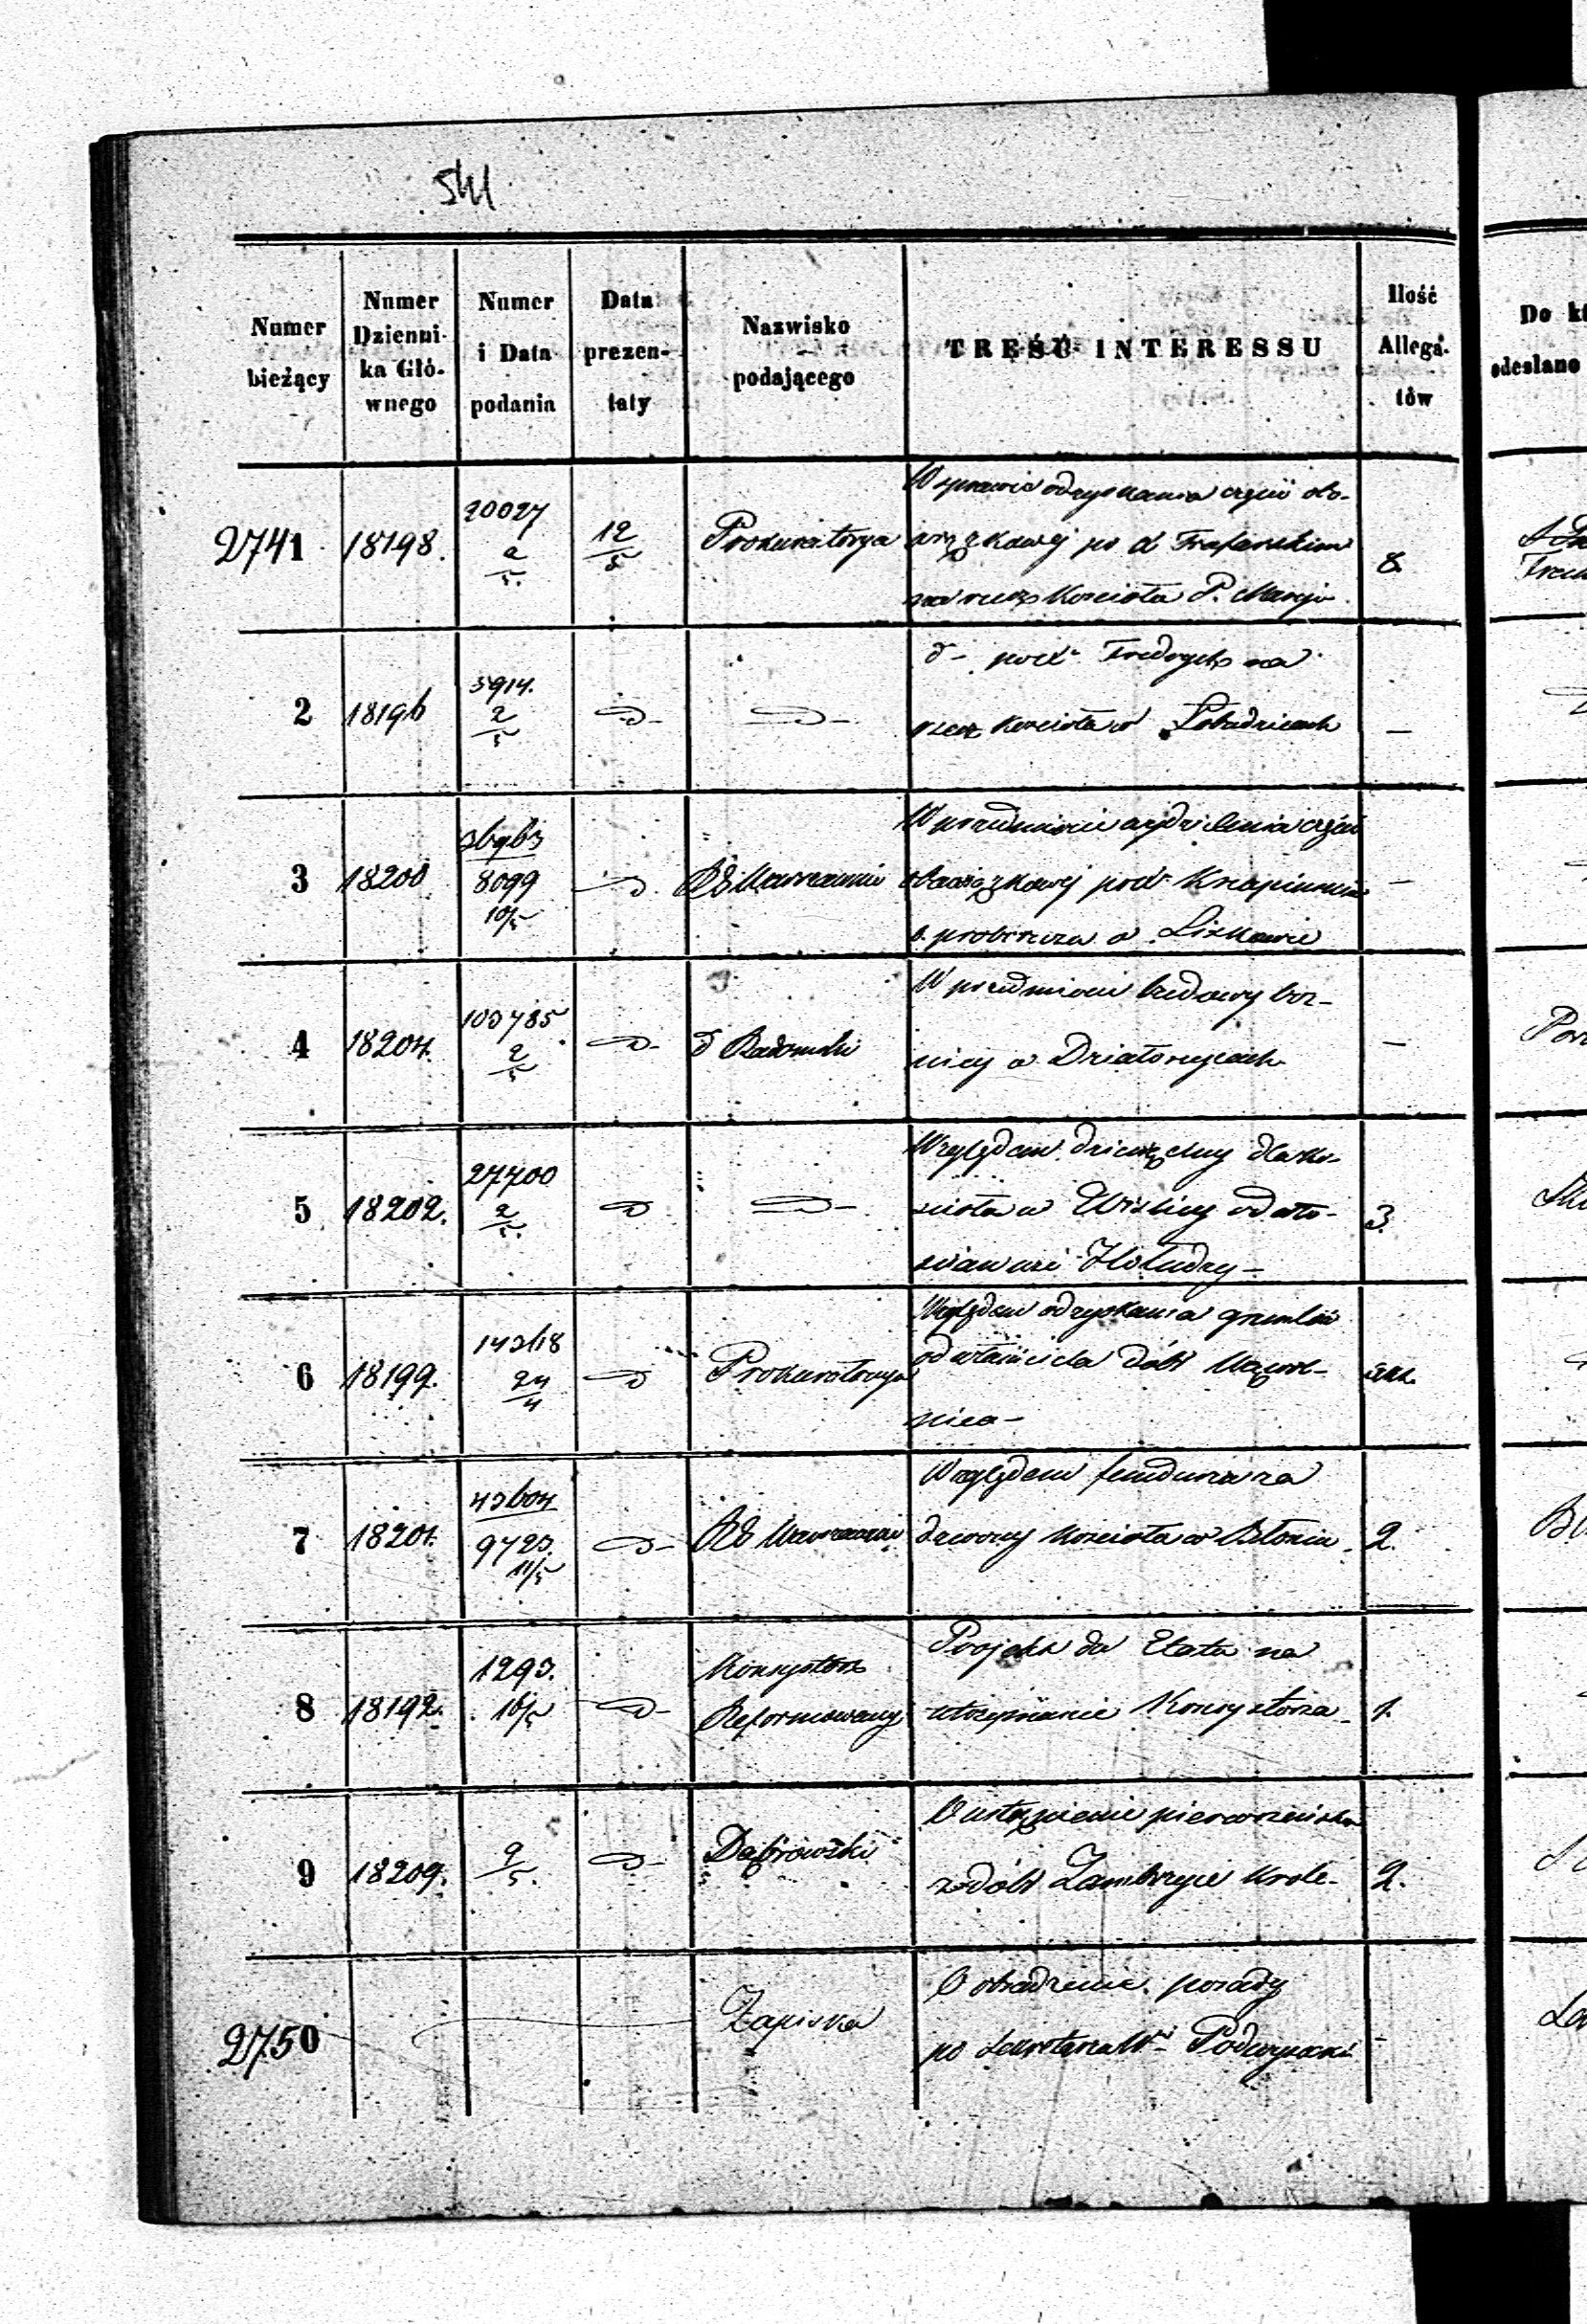 541
Numer bieżący | Numer Dzienni- ka Głó- wnego | Numer i Data podania | Data prezen- taty | Nazwisko podającego | TREŚĆ INTERESSU | Ilość Allega- tów | Do kt odesłano
2741 18198. 20027 2/5. 12/5 Prokuratorya W sprawie odzyskania części obo-
wiązkowej po
na rzecz Kościoła P. Maryi 8.
2 18196 5914. 2/5 -D- -D- d- po Xe Fredrych na
rzecz Kościoła w Łobudzicach -
3 18200 36963 8099 10/5 -D- RG Warszawski W przedmiocie wydzielenia części
obowiązkowej po Xe
b. proboszcza w Liskowie -
4 18204. 103785 2/5 -D- d Radomski W przedmiocie budowy boż-
nicy w Działoszycach -
5 18202. 27700 2/5. -D- -D- Względem dziesięciny dla ko-
ścioła w Wiślicy od wło-
ścian wsi Hołudzy - 3.
6 18199. 24/4 -D- Prokuratorya Względem odzyskania gruntów
od właściciela dóbr
nica - akt.
7 18201. 43604 9723. 11/5 -D- RG Warszawski Względem funduszu na
dzwony Kościoła w Błoniu - 2.
8 18192. 1293. 10/5 -D- Konsystorz Reformowany Projekt do Etatu na
utrzymanie Konsystorza - 1.
9 18209. 9/5. -D- Dąbrowski O ustąpienie pierwszeństwa
z dóbr Zambrzyce Krole- 2.
2750 Zapiska O obsadzenie posady
po -